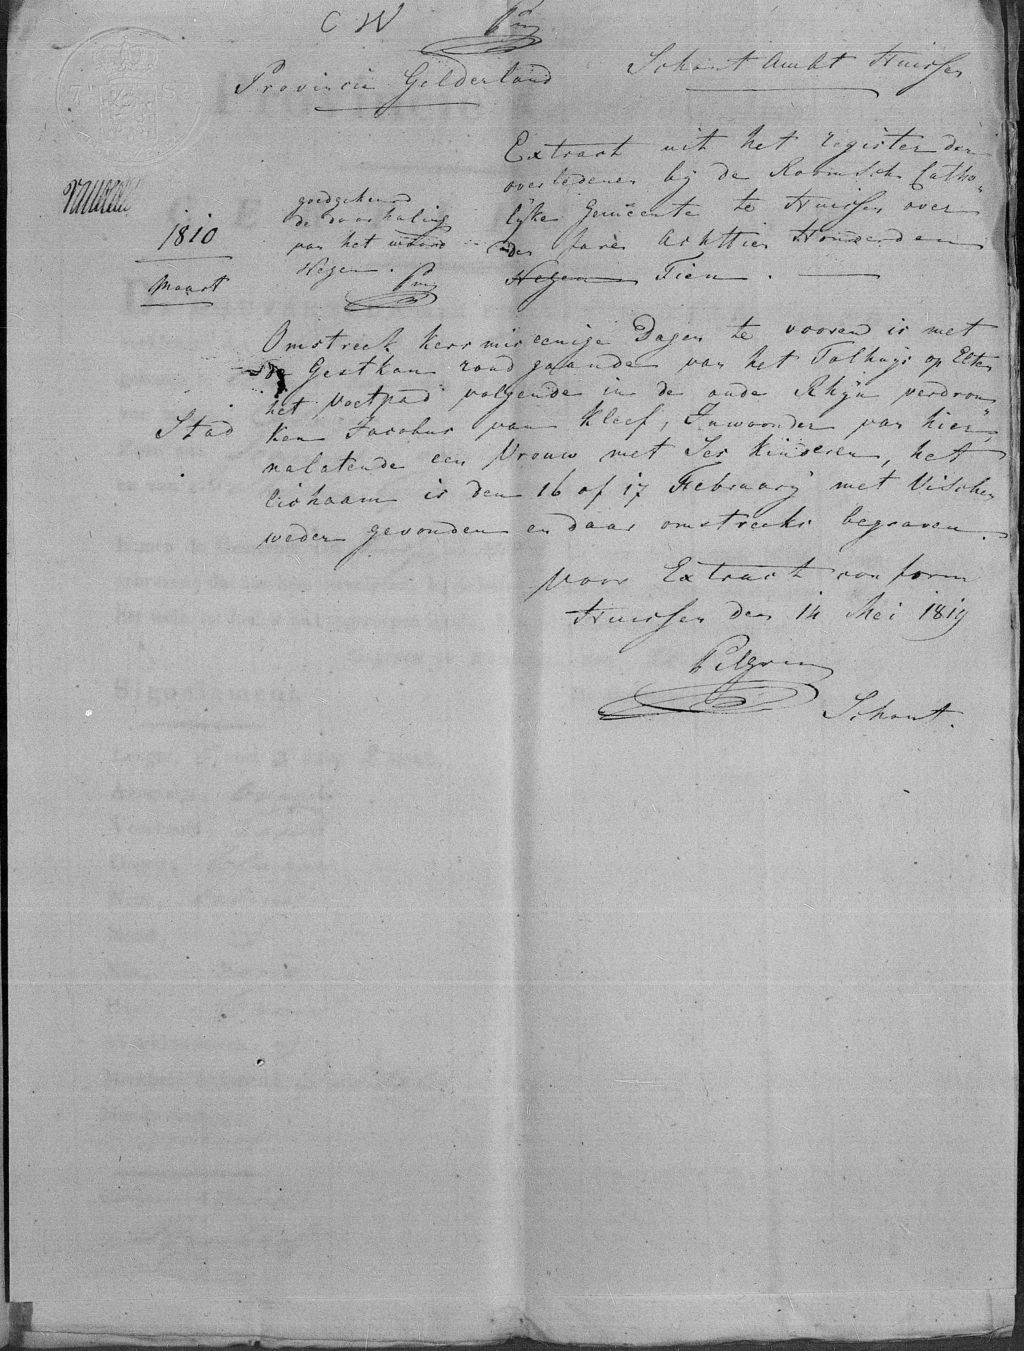 C W
Provincie Gelderland
Schout Ambt Huissen
Extract uit het register der
overledenen bij de Roomsch Catho„
lyke Gemeente te Huissen over
den Jare Achttien Honderd en
Negen Tien.
goedgekeurd
de doorhaling
van het woord
Negen.
1810
Maart
Omstreek kersmis eenige Dagen te vooren is met
de Gestkan rond gaande van het Tolhuys op Elten
het voetpad volgende in de oude Rhyn verdron„
Stad
ken Jacobus van Kleef, Inwoonder van hier,
nalatende een Vrouw met Ses Kinderen, het
lichaam is den 16 of 17 February met Visschen
weder gevonden en daar omstreeks begraven.
Voor Extract conform
Huissen den 14 Mei 1819
Pelgrim
Schout.